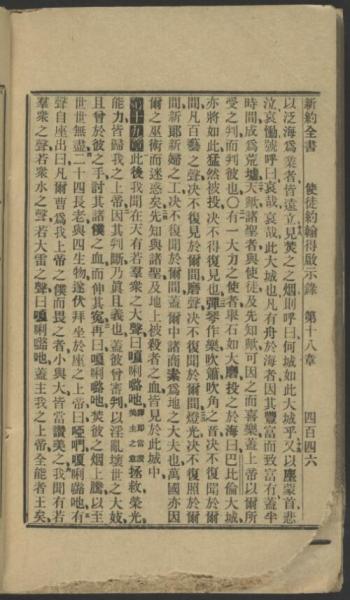 新約全書　使徒約翰得啟示錄　第十八章　四百四六
以泛海爲業者皆遠立見焚之之烟則呼曰何城如此大城乎又以塵蒙首悲
泣哀慟號呼曰哀哉哀哉此大城也凡有舟於海者因其豐富而致富有蓋半
時間成爲荒墟天賦諸聖者與使徒及先知歟可因之而喜樂蓋上帝以爾所
受之判而判彼也〇有一大力之使者舉石如大磨投之於海曰巴比倫大城
亦將如此猛然被投決不得復見也彈琴作樂吹簫吹角之音決不復聞於爾
間凡百藝之聲決不復見於爾間磨聲決不復聞於爾間燈光決不復照於爾
間新郎新婦之工決不復聞於爾間蓋爾中諸商素爲地之大夫也萬國亦因
爾之巫術而迷惑矣先知與諸聖及地上被殺者之血皆見於此城中
第十九章此後我聞在天有若羣衆之大聲曰嗄唎嚧吔譯即當讚美主之意拯救榮光
能力皆歸我之上帝因其判斷乃眞且義也蓋彼曾審判以淫亂壞世之大妓
且曾於彼之手討其諸僕之血而伸其寃再曰嗄唎嚧吔焚彼之烟上騰以至
世世無盡二十四長老與四生物遂伏拜坐於座之上帝曰啞們嗄唎嚧吔有
聲自座出曰凡爾曹爲我上帝之僕而畏之者小與大皆當讚美之我聞有若
羣衆之聲若衆水之聲若大雷之聲曰嗄唎嚧吔蓋主我之上帝全能者王矣